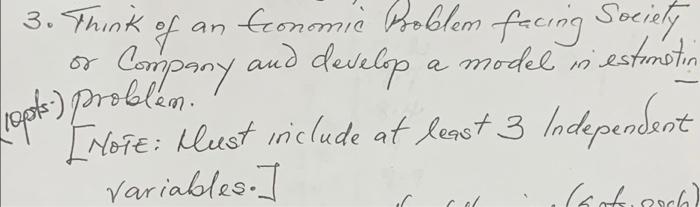 3. Think of an Economic Problem facing Society
or Company and develop a model in estimatin
(10pts.) problem.
[NOTE: Must include at least 3 Independent
variables.]